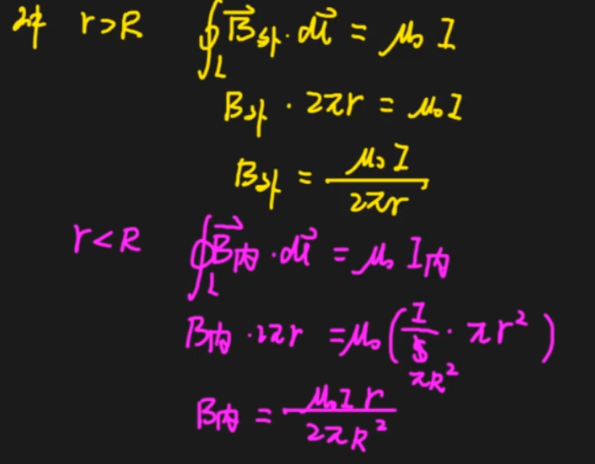 对 r>R ∮_L B⃗外·dl⃗ = μ₀ I
B外 · 2πr = μ₀I
B外 = μ₀I / 2πr
r<R ∮_L B⃗内·dl⃗ = μ₀ I内
B内 · 2πr = μ₀( I / πR² · πr² )
B内 = μ₀Ir / 2πR²